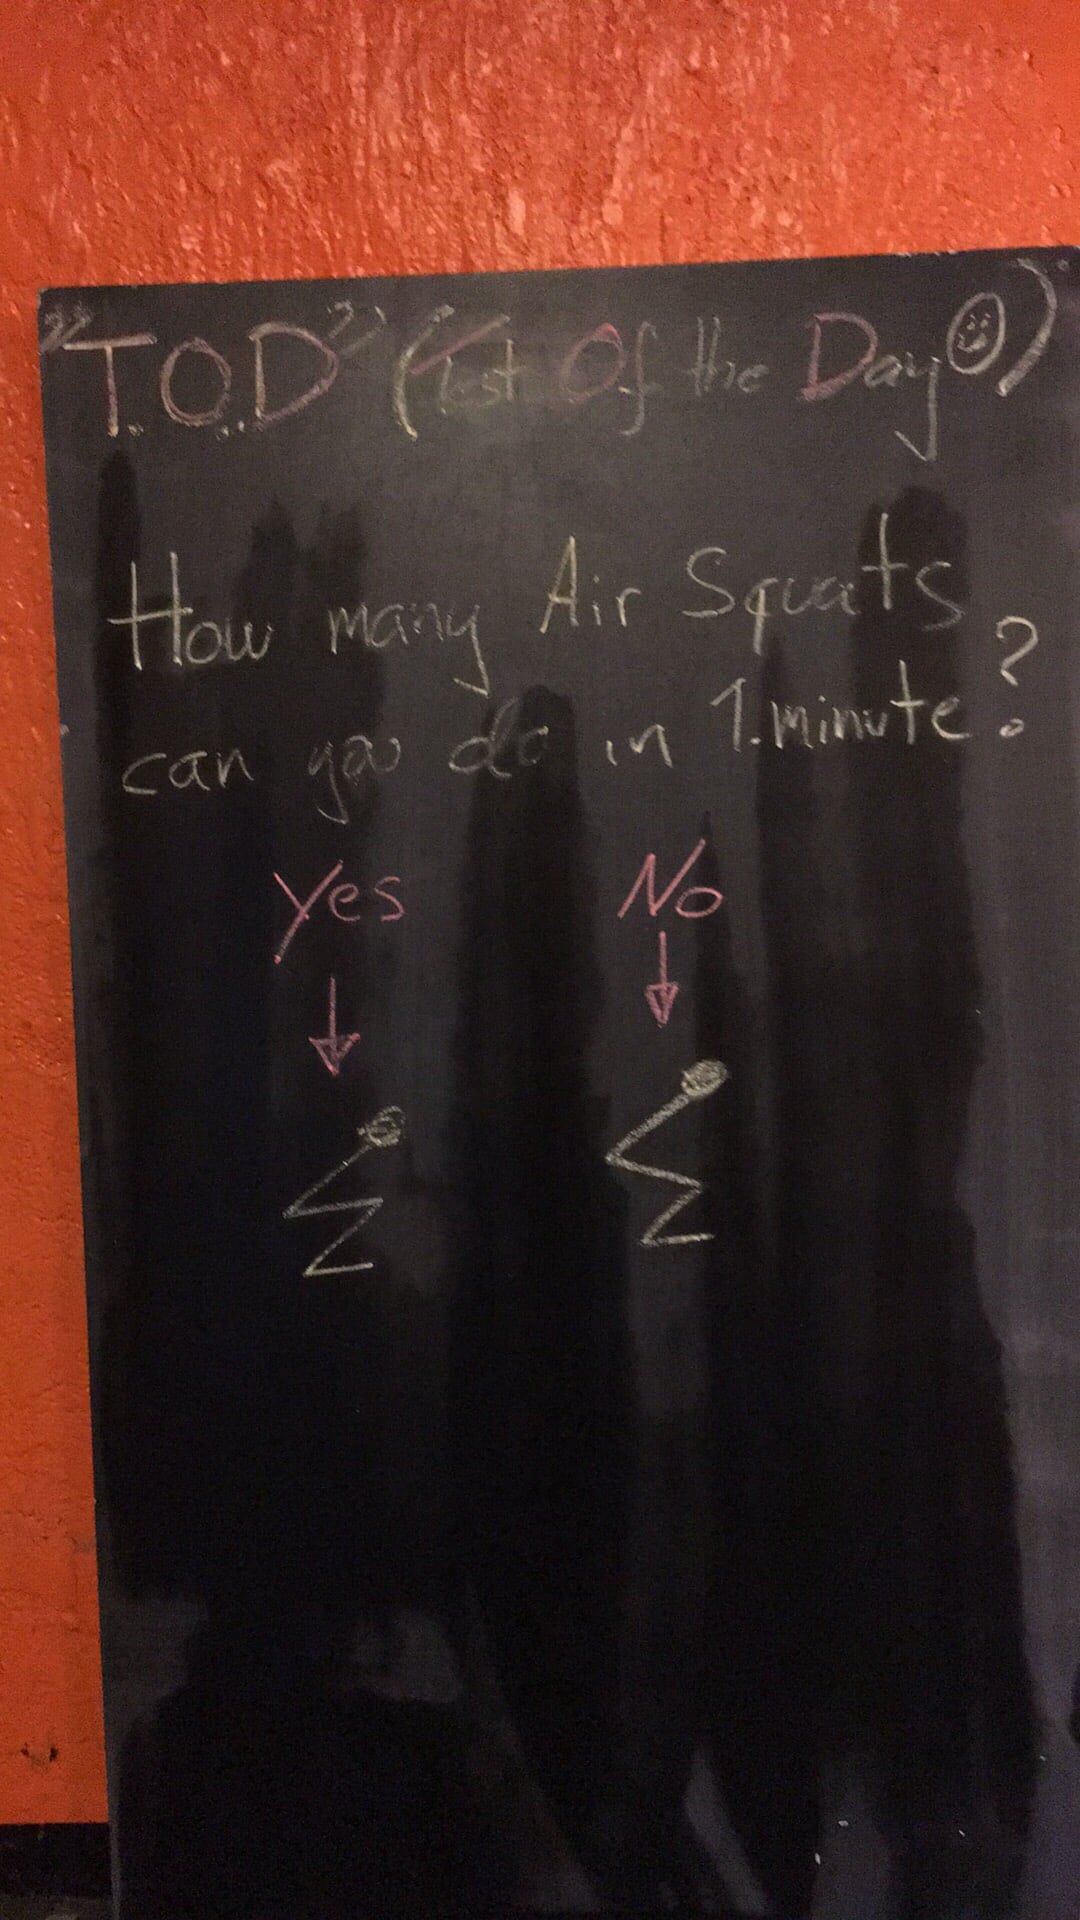 "T.O.D" (Test Of the Day☺)
How many Air Squats
can you do in 1 minute?
Yes No